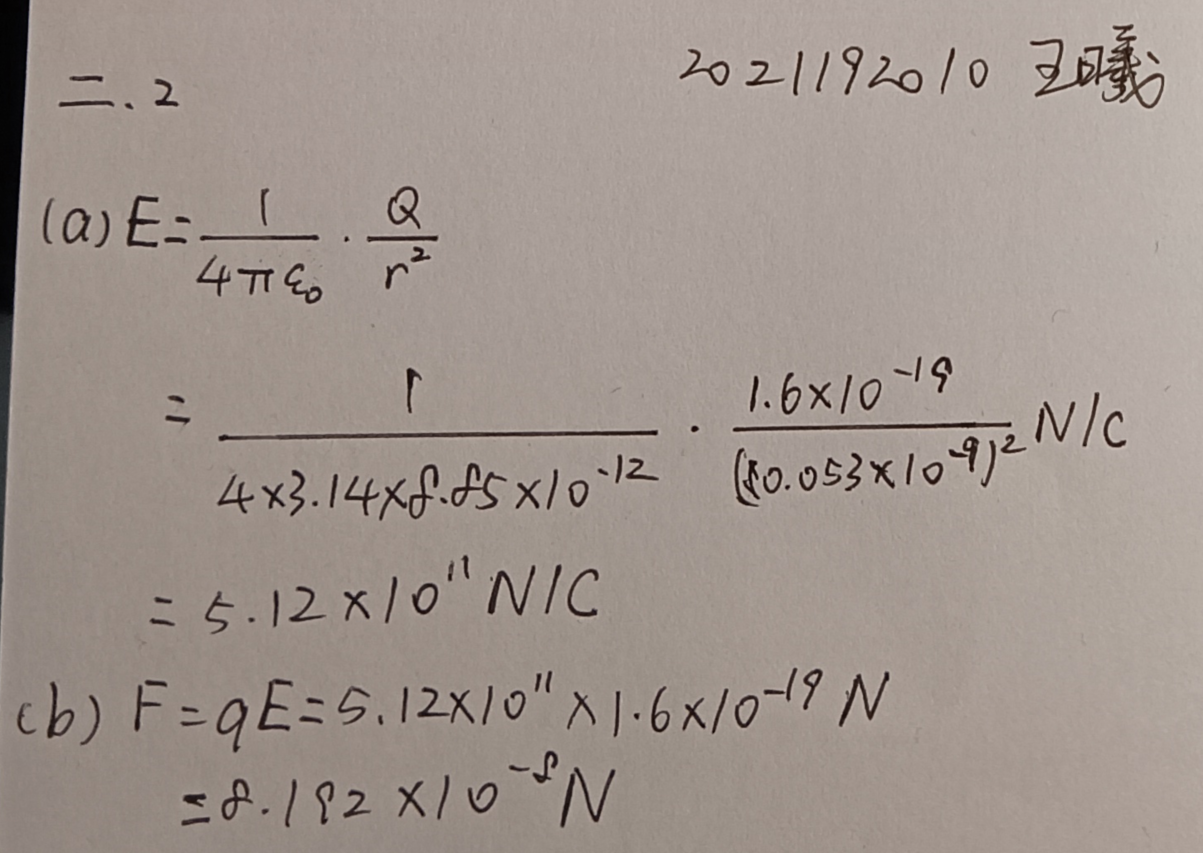 二.2
2021192010 王曦
(a) E = 1/(4πε₀) · Q/r²
= 1/(4×3.14×8.85×10⁻¹²) · 1.6×10⁻¹⁹/(0.053×10⁻⁹)² N/C
= 5.12×10¹¹ N/C
(b) F = qE = 5.12×10¹¹ × 1.6×10⁻¹⁹ N
= 8.192×10⁻⁸ N